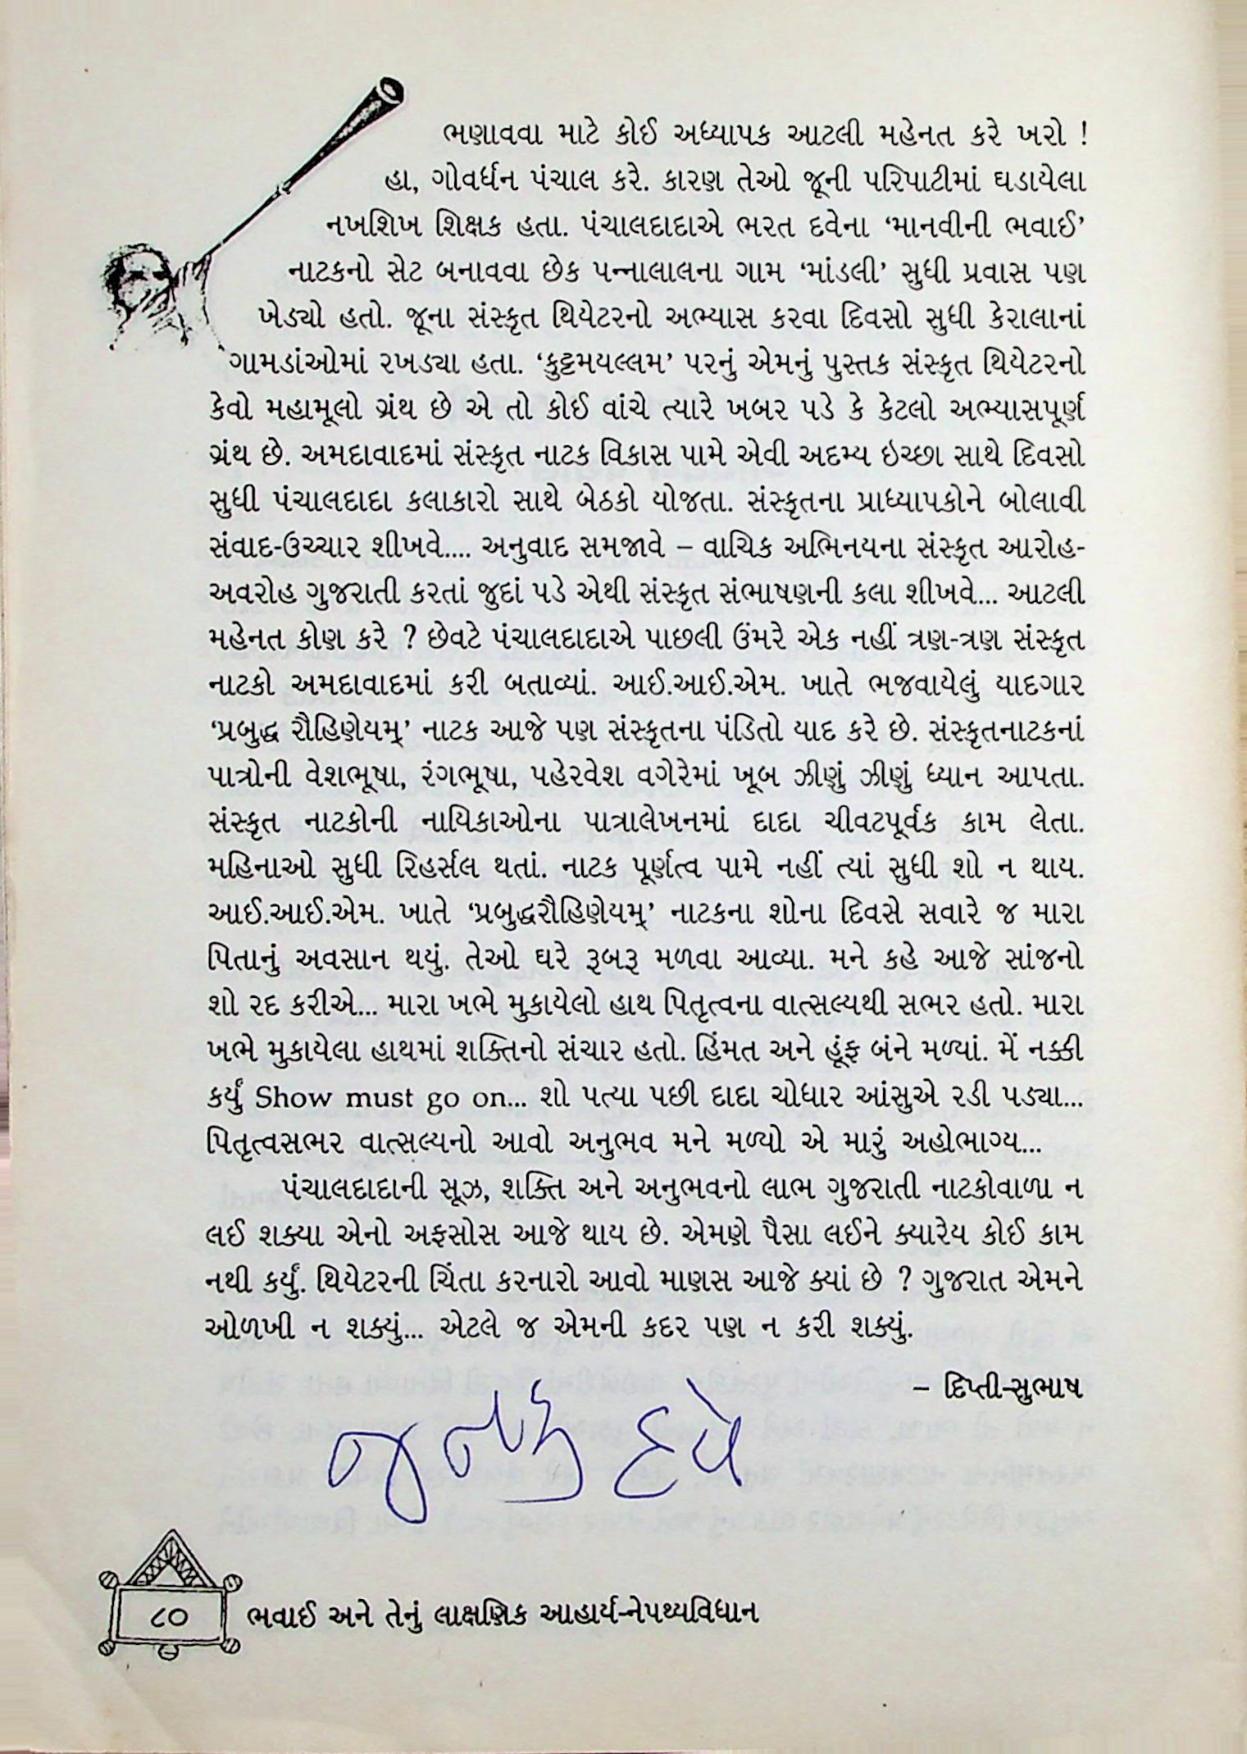 ભણાવવા માટે કોઈ અધ્યાપક આટલી મહેનત કરે ખરો !
હા, ગોવર્ધન પંચાલ કરે. કારણ તેઓ જૂની પરિપાટીમાં ઘડાયેલા
નખશિખ શિક્ષક હતા. પંચાલદાદાએ ભરત દવેના ‘માનવીની ભવાઈ’
નાટકનો સેટ બનાવવા છેક પન્નાલાલના ગામ ‘માંડલી’ સુધી પ્રવાસ પણ
ખેડ્યો હતો. જૂના સંસ્કૃત થિયેટરનો અભ્યાસ કરવા દિવસો સુધી કેરાલાનાં
ગામડાંઓમાં રખડ્યા હતા. ‘કુટ્ટમયલ્લમ’ પરનું એમનું પુસ્તક સંસ્કૃત થિયેટરનો
કેવો મહામૂલો ગ્રંથ છે એ તો કોઈ વાંચે ત્યારે ખબર પડે કે કેટલો અભ્યાસપૂર્ણ
ગ્રંથ છે. અમદાવાદમાં સંસ્કૃત નાટક વિકાસ પામે એવી અદમ્ય ઇચ્છા સાથે દિવસો
સુધી પંચાલદાદા કલાકારો સાથે બેઠકો યોજતા. સંસ્કૃતના પ્રાધ્યાપકોને બોલાવી
સંવાદ-ઉચ્ચાર શીખવે.... અનુવાદ સમજાવે – વાચિક અભિનયના સંસ્કૃત આરોહ-
અવરોહ ગુજરાતી કરતાં જુદાં પડે એથી સંસ્કૃત સંભાષણની કલા શીખવે... આટલી
મહેનત કોણ કરે ? છેવટે પંચાલદાદાએ પાછલી ઉંમરે એક નહીં ત્રણ-ત્રણ સંસ્કૃત
નાટકો અમદાવાદમાં કરી બતાવ્યાં. આઈ.આઈ.એમ. ખાતે ભજવાયેલું યાદગાર
‘પ્રબુદ્ધ રૌહિણેયમ્’ નાટક આજે પણ સંસ્કૃતના પંડિતો યાદ કરે છે. સંસ્કૃતનાટકનાં
પાત્રોની વેશભૂષા, રંગભૂષા, પહેરવેશ વગેરેમાં ખૂબ ઝીણું ઝીણું ધ્યાન આપતા.
સંસ્કૃત નાટકોની નાયિકાઓના પાત્રાલેખનમાં દાદા ચીવટપૂર્વક કામ લેતા.
મહિનાઓ સુધી રિહર્સલ થતાં. નાટક પૂર્ણત્વ પામે નહીં ત્યાં સુધી શો ન થાય.
આઈ.આઈ.એમ. ખાતે ‘પ્રબુદ્ધરૌહિણેયમ્’ નાટકના શોના દિવસે સવારે જ મારા
પિતાનું અવસાન થયું. તેઓ ઘરે રૂબરૂ મળવા આવ્યા. મને કહે આજે સાંજનો
શો રદ કરીએ... મારા ખભે મુકાયેલો હાથ પિતૃત્વના વાત્સલ્યથી સભર હતો. મારા
ખભે મુકાયેલા હાથમાં શક્તિનો સંચાર હતો. હિંમત અને હૂંફ બંને મળ્યાં. મેં નક્કી
કર્યું Show must go on... શો પત્યા પછી દાદા ચોધાર આંસુએ રડી પડ્યા...
પિતૃત્વસભર વાત્સલ્યનો આવો અનુભવ મને મળ્યો એ મારું અહોભાગ્ય...
પંચાલદાદાની સૂઝ, શક્તિ અને અનુભવનો લાભ ગુજરાતી નાટકોવાળા ન
લઈ શક્યા એનો અફસોસ આજે થાય છે. એમણે પૈસા લઈને ક્યારેય કોઈ કામ
નથી કર્યું. થિયેટરની ચિંતા કરનારો આવો માણસ આજે ક્યાં છે ? ગુજરાત એમને
ઓળખી ન શક્યું... એટલે જ એમની કદર પણ ન કરી શક્યું.
– દિપ્તી-સુભાષ
જનક દવે
૮૦ ભવાઈ અને તેનું લાક્ષણિક આહાર્ય-નેપથ્યવિધાન